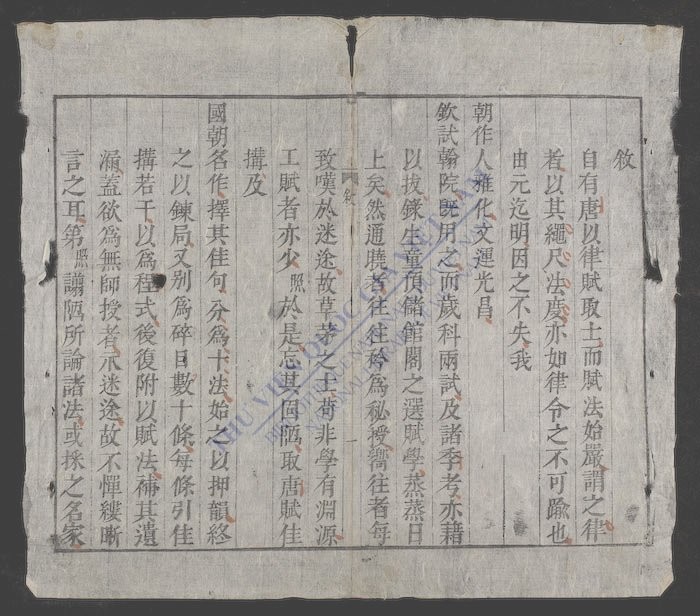 敘
自有唐以律賦取士而賦法始嚴謂之律
者以其繩尺法度亦如律令之不可踰也
由元迄明因之不失我
朝作人雅化文運光昌
欽試翰院既用之而歲科兩試及諸季考亦藉
以拔錄生童預儲館閣之選賦學蒸蒸日
上矣然通曉者往往矜為秘授嚮往者每
敘
一
致嘆於迷途故草茅之士苟非學有淵源
工賦者亦少照於是忘其固陋取唐賦佳
搆及
國朝名作擇其佳句分為十法始之以押韻終
之以鍊局又別為碎目數十條每條引佳
搆若干以為程式後復附以賦法補其遺
漏蓋欲為無師授者示迷途故不憚縷晰
言之耳第照譾陋所論諸法或採之名家
THƯ VIỆN QUỐC GIA VIỆT NAM
NATIONAL LIBRARY